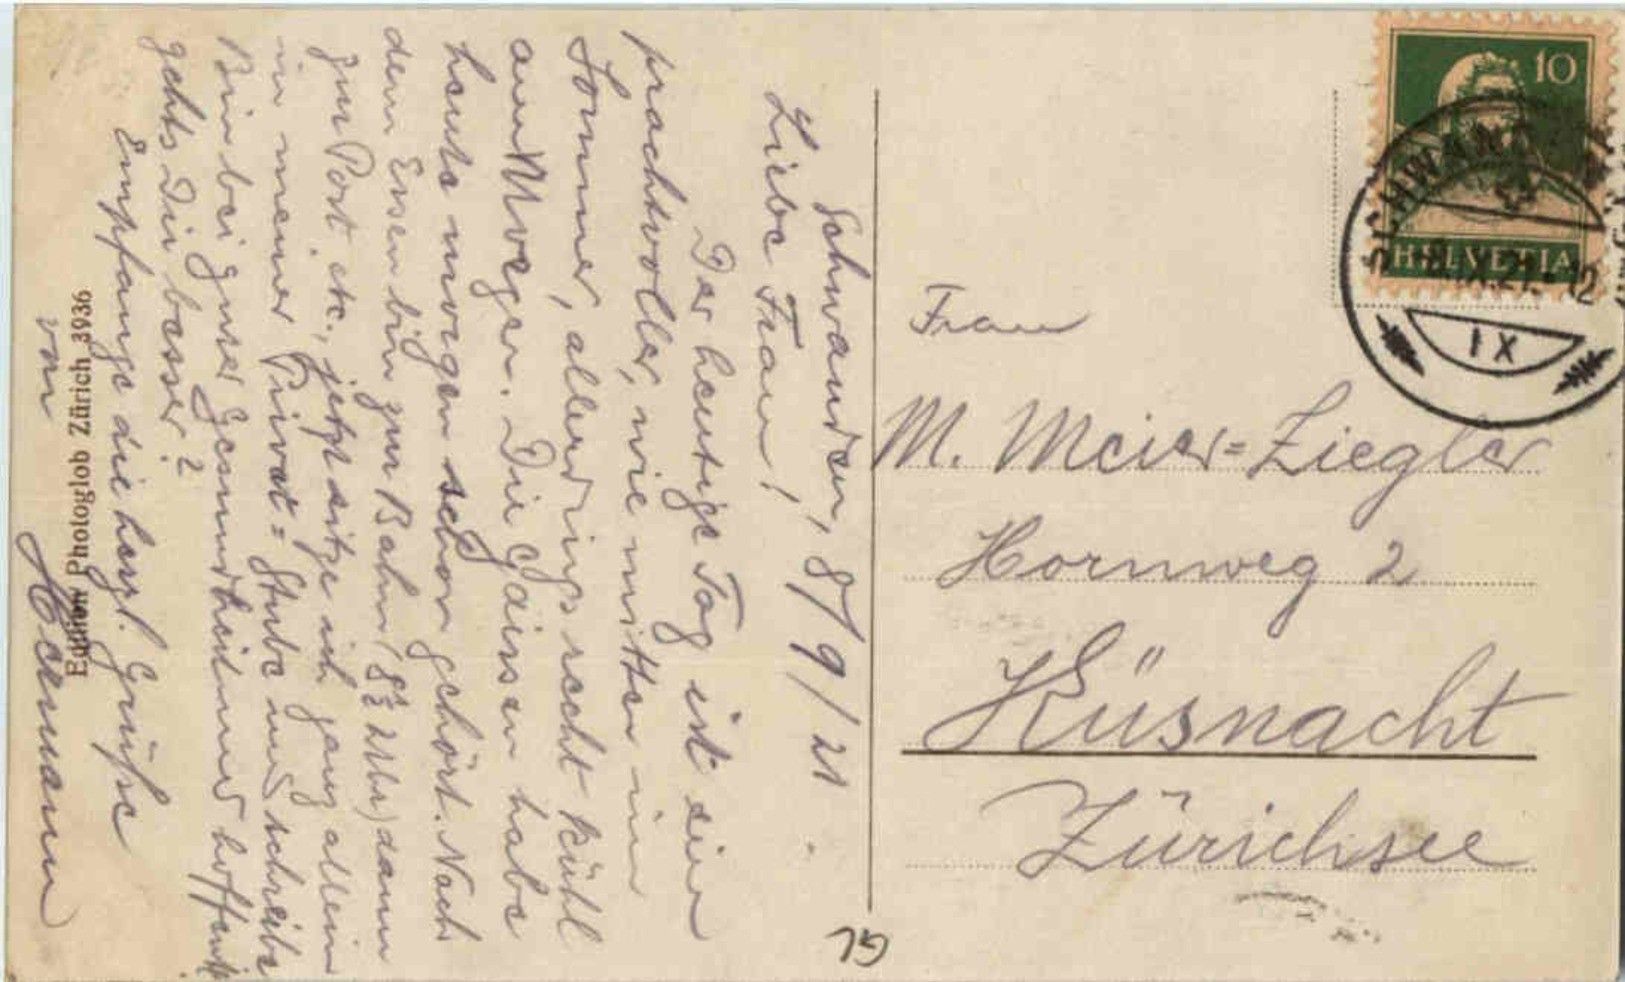 Schwanden, 8/9/21.
Liebe Frau!
Der heutige Tag ist ein
prachtvoller, wie mitten im
Sommer, allerdings recht kühl
am Morgen. Die Gaissen habe
heute morgen schon gehört. Nach
dem Essen bin zur Bahn (8½ Uhr) dann
zur Post etc., jetzt sitze ich ganz allein
in meiner Privat= Stube und schreibe
Bin bei guter Gesundheit und hoffentl.
gehts Dir besser?
Empfange die herzl. Grüsse
von Hermann
Edition Photoglob Zürich 3936
10
HELVETIA
SCHWANDEN
8.IX.21.-12
IX
Frau
M. Meier=Ziegler
Hornweg 2
Küsnacht
Zürichsee
GL